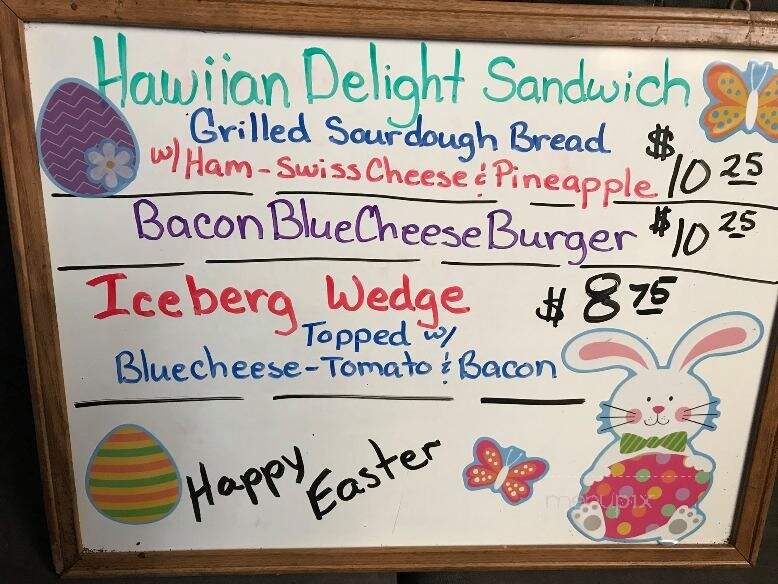 Hawiian Delight Sandwich
Grilled Sourdough Bread
w/ Ham - Swiss Cheese & Pineapple $10 25
Bacon Blue Cheese Burger $10 25
Iceberg Wedge $8 75
Topped w/
Bluecheese - Tomato & Bacon
Happy Easter
menupix